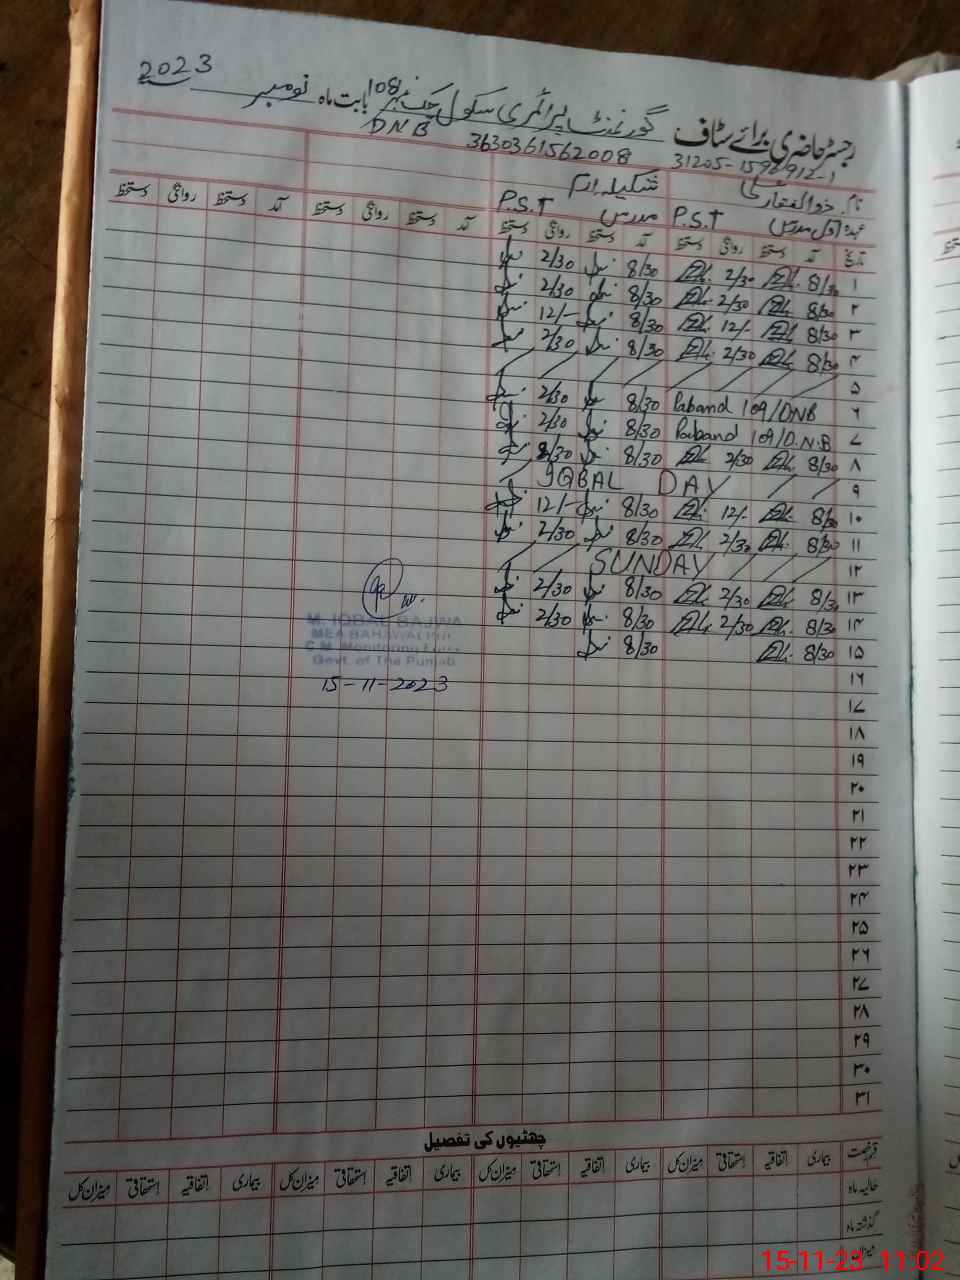 رجسٹر حاضری برائے سٹاف گورنمنٹ پرائمری سکول چک نمبر 108 بابت ماہ نومبر 2023
DNB
31205-1592912-1 3630361562008
نام ذوالفقار علی شکیلہ ارم
عہدہ اول مدرس P.S.T مدرس P.S.T
تاریخ آمد دستخط روانگی دستخط آمد دستخط روانگی دستخط آمد دستخط روانگی دستخط آمد دستخط روانگی دستخط
۱ 8/30 2/30 8/30 2/30
۲ 8/30 2/30 8/30 2/30
۳ 8/30 12/- 8/30 12/-
۴ 8/30 2/30 8/30 2/30
۵
۶ Paband 109/DNB 8/30 2/30
۷ Paband 109/D.N.B 8/30 2/30
۸ 8/30 2/30 8/30 2/30
۹ IQBAL DAY
۱۰ 8/30 12/- 8/30 12/-
۱۱ 8/30 2/30 8/30 2/30
۱۲ SUNDAY
۱۳ 8/30 2/30 8/30 2/30
۱۴ 8/30 2/30 8/30 2/30
۱۵ 8/30 8/30
M. IQBAL BAJWA
MEA BAHAWALPUR
C.M. Monitoring Force
Govt. of The Punjab
15-11-2023
۱۶
۱۷
۱۸
۱۹
۲۰
۲۱
۲۲
۲۳
۲۴
۲۵
۲۶
۲۷
۲۸
۲۹
۳۰
۳۱
چھٹیوں کی تفصیل
قسم رخصت بیماری اتفاقیہ استحقاقی میزان کل بیماری اتفاقیہ استحقاقی میزان کل بیماری اتفاقیہ استحقاقی میزان کل بیماری اتفاقیہ استحقاقی میزان کل
حالیہ ماہ
گذشتہ ماہ
میزان
15-11-23 11:02